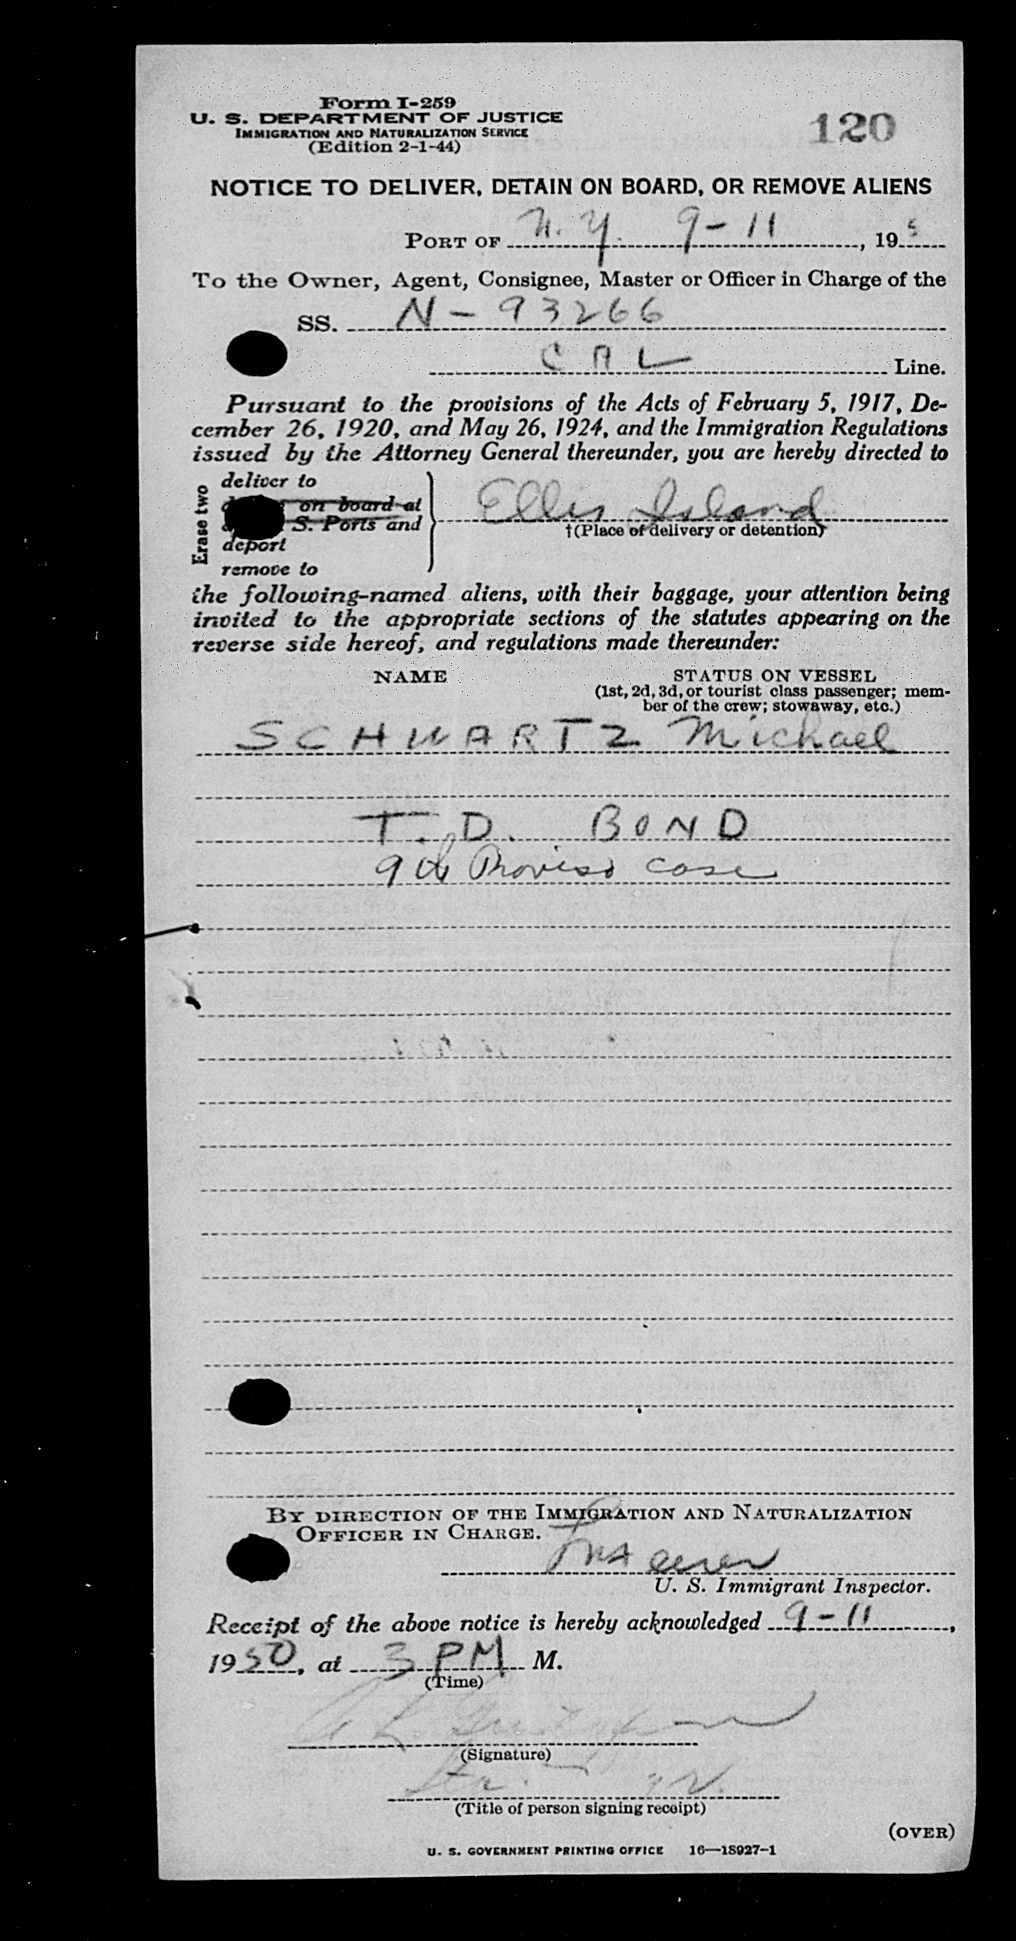 Form I-259
U. S. DEPARTMENT OF JUSTICE
IMMIGRATION AND NATURALIZATION SERVICE
(Edition 2-1-44)
120
NOTICE TO DELIVER, DETAIN ON BOARD, OR REMOVE ALIENS
PORT OF N. Y. 9-11, 195
To the Owner, Agent, Consignee, Master or Officer in Charge of the
SS. N-93266
CAL Line.
Pursuant to the provisions of the Acts of February 5, 1917, De-
cember 26, 1920, and May 26, 1924, and the Immigration Regulations
issued by the Attorney General thereunder, you are hereby directed to
Erase two
deliver to
on board at
S. Ports and
deport
remove to
Ellis Island
†(Place of delivery or detention)
the following-named aliens, with their baggage, your attention being
invited to the appropriate sections of the statutes appearing on the
reverse side hereof, and regulations made thereunder:
NAME
STATUS ON VESSEL
(1st, 2d, 3d, or tourist class passenger; mem-
ber of the crew; stowaway, etc.)
SCHWARTZ Michael
T. D. BOND
9th Proviso case
BY DIRECTION OF THE IMMIGRATION AND NATURALIZATION
OFFICER IN CHARGE.
U. S. Immigrant Inspector.
Receipt of the above notice is hereby acknowledged 9-11,
1950, at 3 PM M.
(Time)
(Signature)
(Title of person signing receipt)
(OVER)
U. S. GOVERNMENT PRINTING OFFICE 16—18927-1